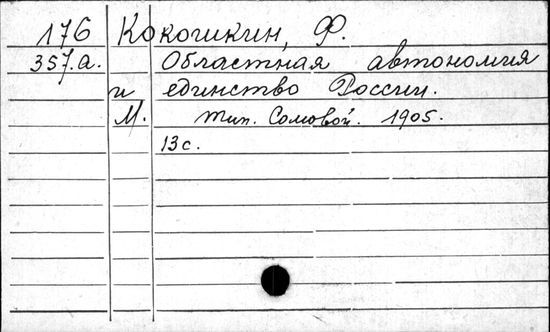 176 Кокошкин, Ф.
357.а. Областная автономия
и единство России.
М. тип. Сомовой. 1905.
13 с.